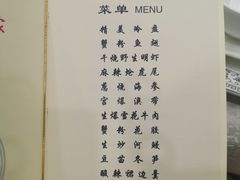 菜单 MENU
精美冷盘
蟹粉鱼翅
干烧野生明虾
麻辣蛤虎尾
葱烧海参
宫爆澳带
生爆雪花牛肉
蟹粉花胶
生炒河鳗
豆苗冬笋
酸辣裙边羹